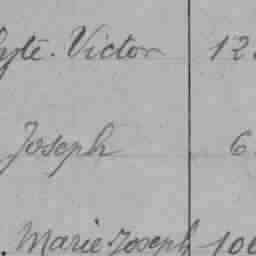 yte. Victor 12
Joseph 6
. Marie Joseph 100